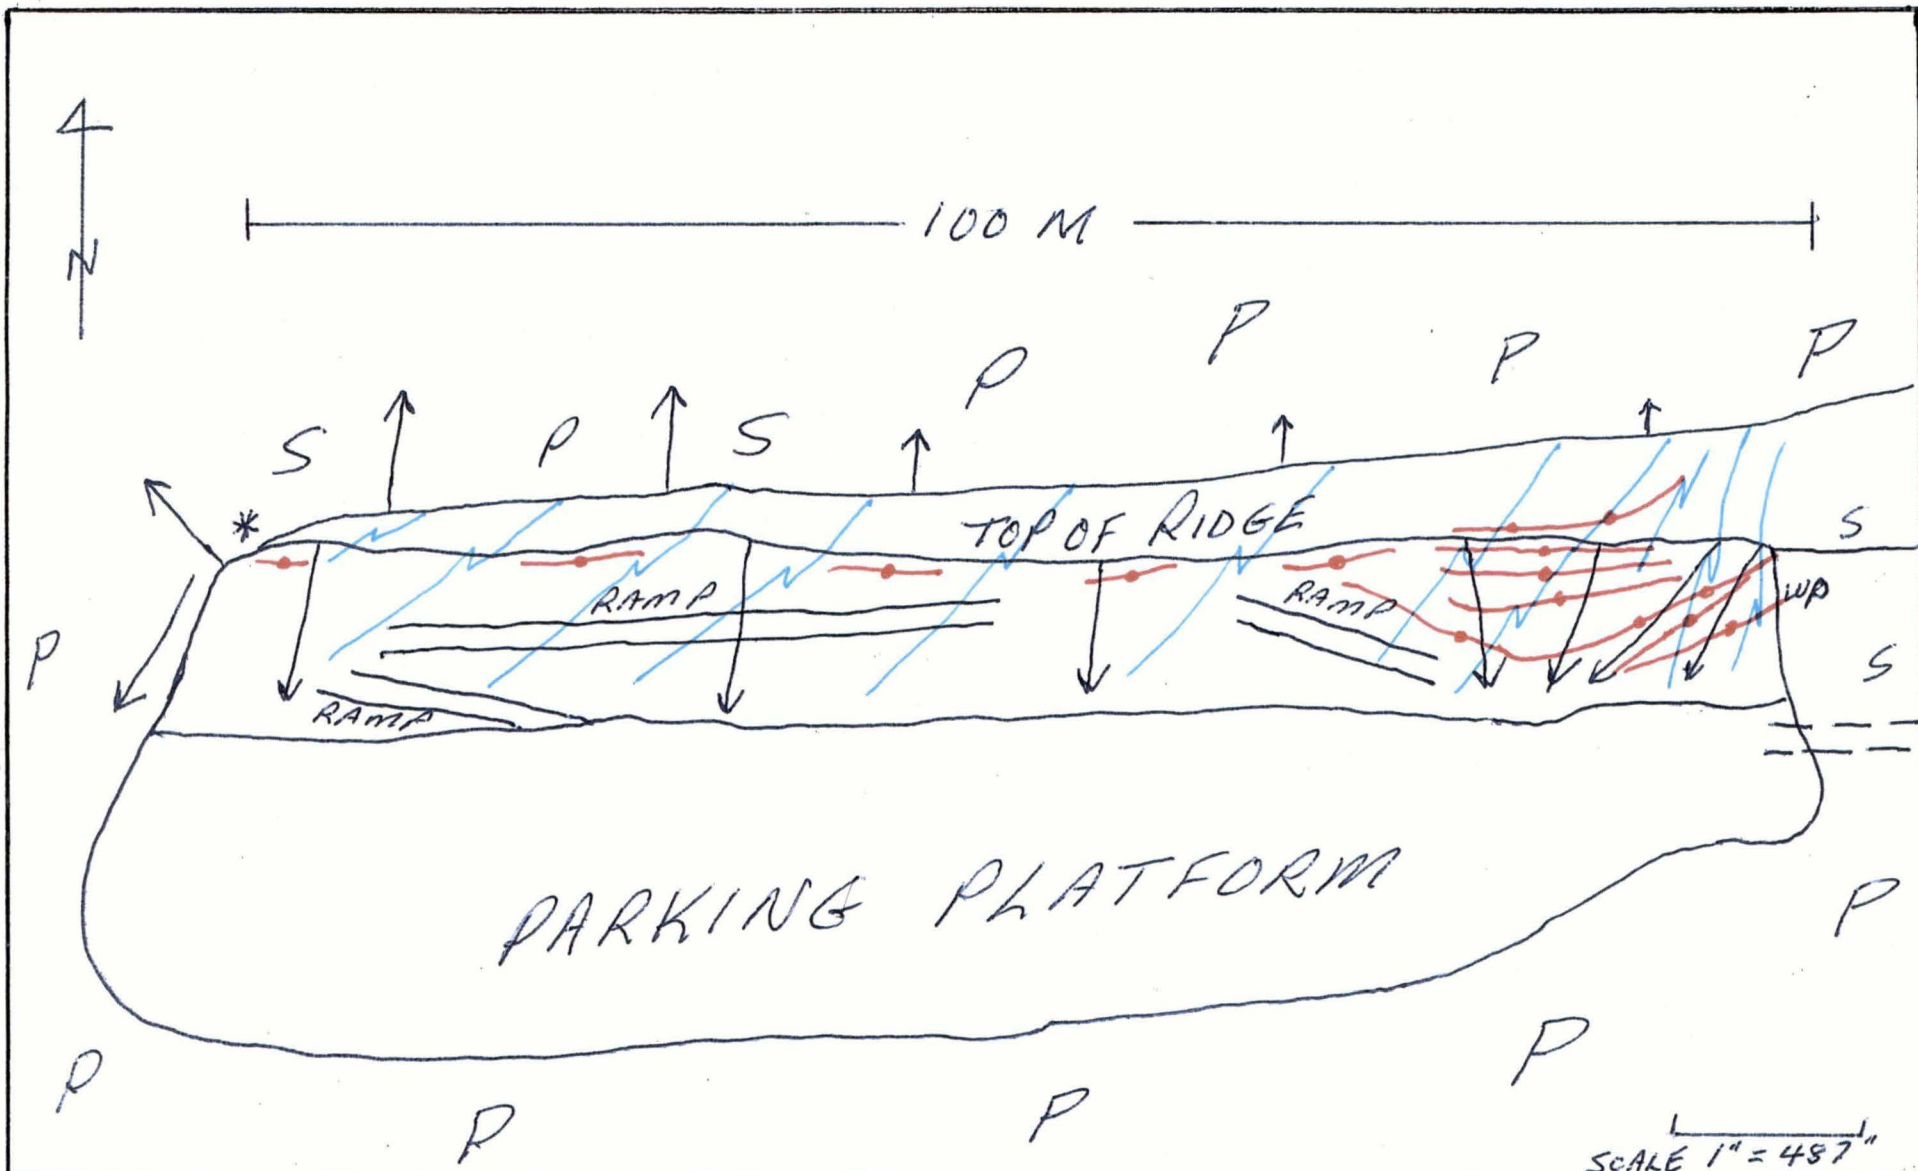 N
100 M
P
P
P
P
S
P
S
*
TOP OF RIDGE
S
RAMP
RAMP
WP
P
S
RAMP
PARKING PLATFORM
P
P
P
P
P
SCALE 1" = 487"